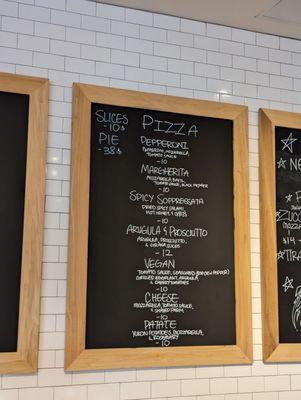 SLICES
-10$
PIE
-38$
PIZZA
PEPPERONI
PEPPERONI, MOZZARELLA,
TOMATO SAUCE
-10
MARGHERITA
MOZZARELLA, BASIL,
TOMATO SAUCE, BLACK PEPPER
-10
SPICY SOPPRESSATA
DRIED SPICY SALAMI,
HOT HONEY, &
-10
ARUGULA & PROSCIUTTO
ARUGULA, PROSCIUTTO,
& GRANA SLICES
-12
VEGAN
TOMATO SAUCE, SEASONED
GRILLED EGGPLANT, ARUGULA
& CHERRY TOMATOES
-10
CHEESE
MOZZARELLA, TOMATO SAUCE,
& SHAVED PARM
-10
PATATE
YUKON POTATOES, MOZZARELLA,
& ROSEMARY
-10
NE
ZUCC
MOZZA
$14
TIRA